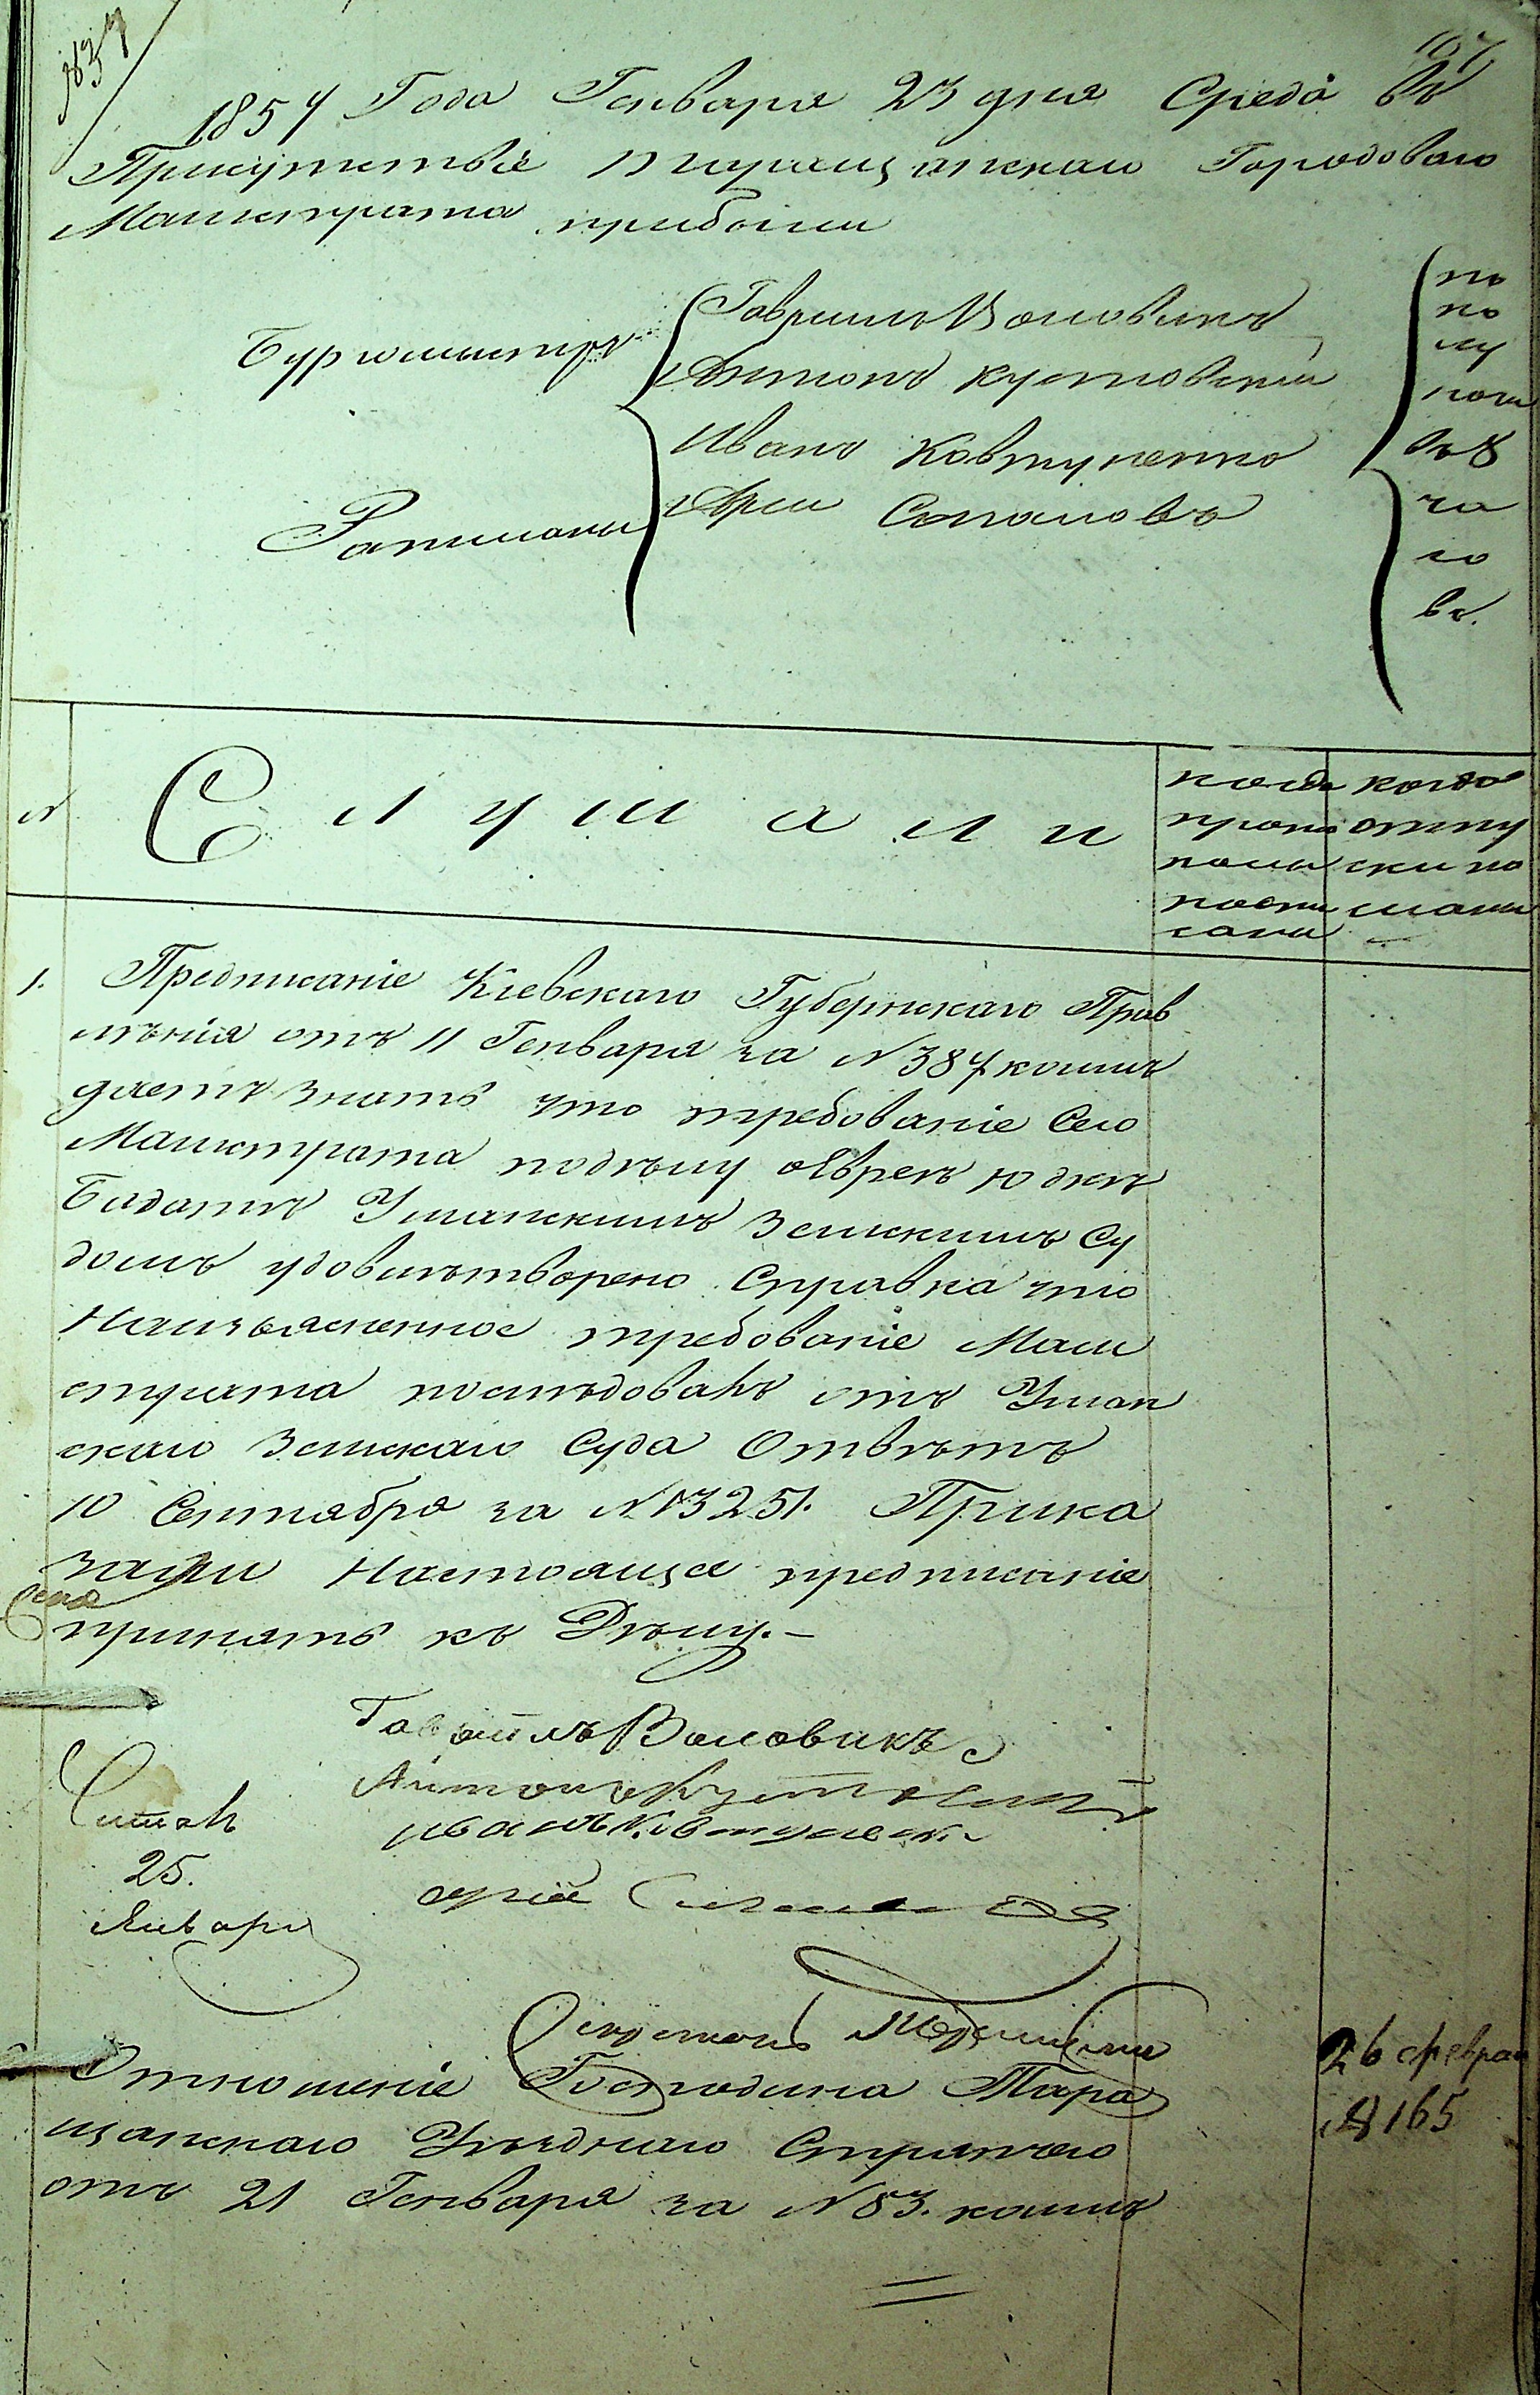 1857
167
1857 Года Генваря 23 дня Среда въ
Присутствіе Таращанскаго Городоваго
Магистрата прибыли
Бургомистръ
Гаврилъ Воловикъ
Антонъ Кустовскій
Ратманы
Иванъ Ковтуненко
Арій Сопаловъ
по
по
лу
ноч
въ 8
ча
со
въ.
N
Слушали
когда
прото
колы
подпи
саны
когда
отпу
ски по
сланы
1. Предписаніе Кіевскаго Губернскаго Прав
лѣнія отъ 11 Генваря за N 387 коимъ
даетъ знать что требованіе Сего
Магистрата подѣлу Еврея Юдки
Умaнскимъ Земскимъ Су
домъ удовлѣтворено. Справка что
Наизъясненное требованіе Маги
страта послѣдовалъ отъ Уман
скаго Земскаго Суда Отвѣтъ
10 Сентября за N 13251. Прика
зали Настоящее предписаніе
принять къ Дѣлу.-
Гавриилъ Воловикъ
Антонъ Кустовскій
Иванъ Ковтуненко
Арій
Читалъ
25.
Января
Секретарь
Отношеніе Господина Тара
щанскаго Уѣзднаго Стряпчаго
отъ 21 Генваря за N 83. коимъ
26 феврал
N 165